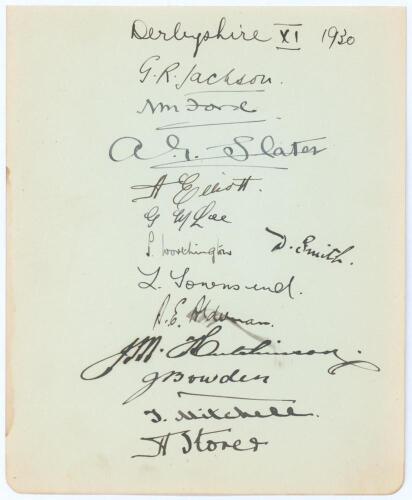 Derbyshire XI 1930
G. R. Jackson.
N M Ford
A. G. Slater
H Elliott.
G M Lee
S. Worthington
D. Smith.
L. Townsend.
A. E. Alderman.
J M. Hutchinson.
J Bowden
T. Mitchell.
H Storer